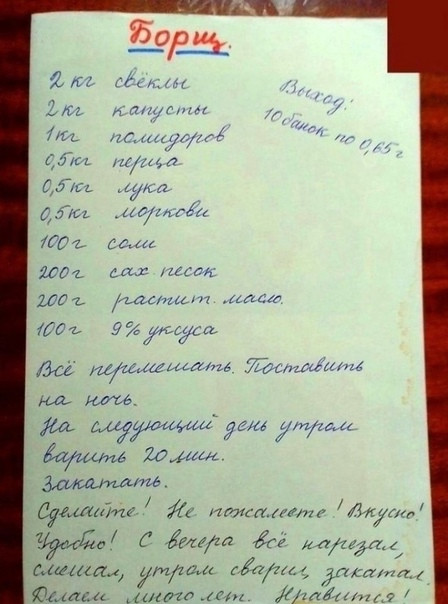 Борщ.
2 кг свёклы
Выход:
2 кг капусты
10 банок по 0,65 г
1 кг помидоров
0,5 кг перца
0,5 кг лука
0,5 кг моркови
100 г соли
200 г сах. песок
200 г растит. масло.
100 г 9% уксуса
Всё перемешать. Поставить
на ночь.
На следующий день утром
варить 20 мин.
Закатать.
Сделайте! Не пожалеете! Вкусно!
Удобно! С вечера всё нарезал,
смешал, утром сварил, закатал.
Делаем много лет. Нравится!